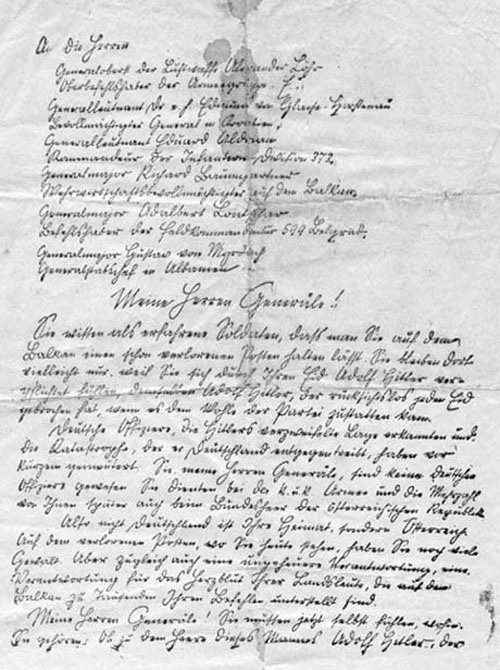 An die Herren
Generaloberst der Luftwaffe Alexander Löhr
Oberbefehlshaber der Armeegruppe E.;
Generalleutnant Dr e.h. Edmund von Glaise-Horstenau
Bevollmächtigter General in Kroatien;
Generalleutnant Eduard Aldrian
Kommandeur der Infanterie-Division 373,
Generalmajor Richard Baumgartner
Wehrwirtschaftsbevollmächtigter auf dem Balkan,
Generalmajor Adalbert Lontschar
Befehlshaber der Feldkommandantur 599 Belgrad.
Generalmajor Gustav von Myrdacz
Generalstabschef in Albanien
Meine Herren Generäle!
Sie wissen als erfahrene Soldaten, dass man Sie auf dem
Balkan einen schon verlorenen Posten halten lässt. Sie bleiben dort
vielleicht nur, weil Sie sich durch Ihren Eid Adolf Hitler ver-
pflichtet fühlen, demselben Adolf Hitler, der rücksichtslos jeden Eid
gebrochen hat, wenn es dem Wohle der Partei zustatten kam.
Deutsche Offiziere, die Hitlers verzweifelte Lage erkannten und
die Katastrophe, der er Deutschland entgegentreibt, haben vor
kurzem gemeutert. Sie, meine Herren Generäle, sind keine deutschen
Offiziere gewesen. Sie dienten bei der k.u.k. Armee und die Mehrzahl
von Ihnen später auch beim Bundesheer der österreichischen Republik
Also nicht Deutschland ist Ihre Heimat, sondern Österreich.
Auf dem verlorenen Posten, wo Sie heute stehen, haben Sie noch viel
Gewalt. Aber zugleich auch eine ungeheuere Verantwortung, eine
Verantwortung für das Herzblut Ihrer Landsleute, die auf dem
Balkan zu Tausenden Ihren Befehlen unterstellt sind.
Meine Herren Generäle! Sie müssen jetzt selbst fühlen, wohin
Sie gehören: Ob zu dem Heere dieses Mannes Adolf Hitler, der